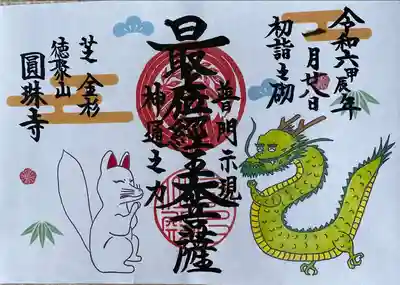 令和六甲辰年
一月廿八日
初詣之砌
普門示現
最位經王大菩薩
神通之力
芝 金杉
徳聚山
圓珠寺